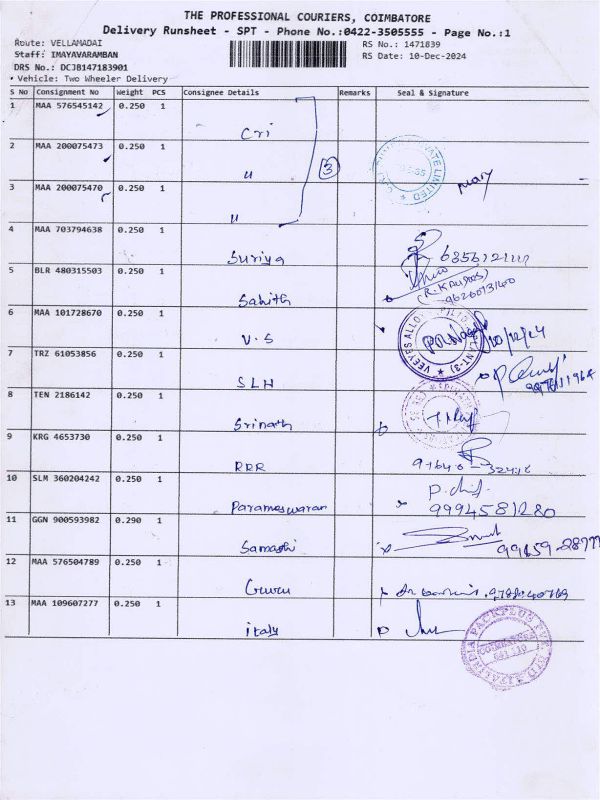 THE PROFESSIONAL COURIERS, COIMBATORE
Delivery Runsheet - SPT - Phone No.:0422-3505555 - Page No.:1
Route: VELLAMADAI
RS No.: 1471839
Staff: IMAYAVARAMBAN
RS Date: 10-Dec-2024
DRS No.: DCJB147183901
Vehicle: Two Wheeler Delivery
S No Consignment No Weight PCS Consignee Details Remarks Seal & Signature
1 MAA 576545142 0.250 1 Cri
2 MAA 200075473 0.250 1 "
3
3 MAA 200075470 0.250 1 "
4 MAA 703794638 0.250 1 Suriya
5 BLR 480315503 0.250 1 Sahith
6 MAA 101728670 0.250 1 V.S 10/12/24
7 TRZ 61053856 0.250 1 SLH
8 TEN 2186142 0.250 1 Srinath
9 KRG 4653730 0.250 1 RRR
10 SLM 360204242 0.250 1 Parameswaran 9994581280
11 GGN 900593982 0.290 1
12 MAA 576504789 0.250 1
13 MAA 109607277 0.250 1 italy